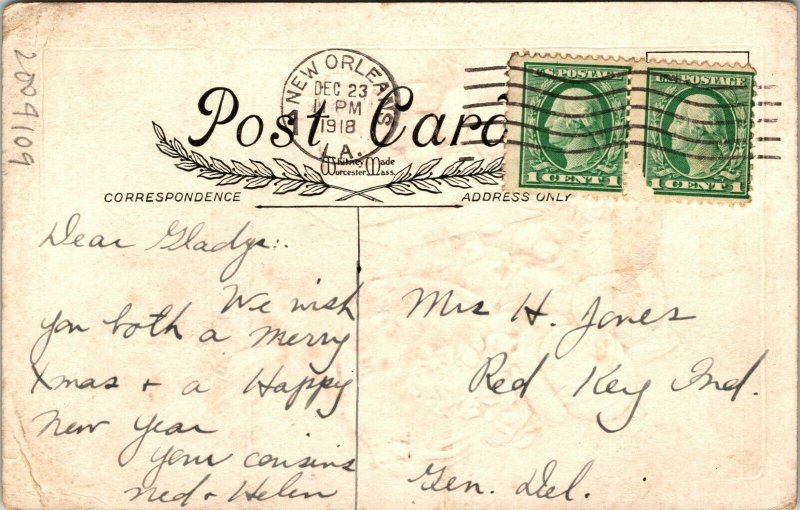 2009109
NEW ORLEANS
DEC 23
11 PM
1918
LA.
Post Card
Whitney Made
Worcester, Mass.
U.S. POSTAGE
1 CENT 1
U.S. POSTAGE
1 CENT 1
CORRESPONDENCE
ADDRESS ONLY
Dear Gladys:.
We wish
you both a merry
Xmas + a Happy
New Year
your cousins
Ned + Helen
Mrs H. Jones
Red Key Ind.
Gen. Del.